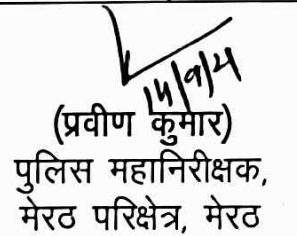 (प्रवीण कुमार)
पुलिस महानिरीक्षक,
मेरठ परिक्षेत्र, मेरठ